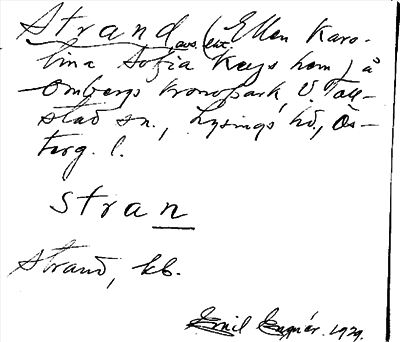 Strand avs. en. (Ellen Karo-
lina Sofia Keys hem) å
Ombergs kronopark, V. Toll-
stad sn., Lysings hd., Ös-
terg. l.
stran
Strand, kb.
Emil 1929.